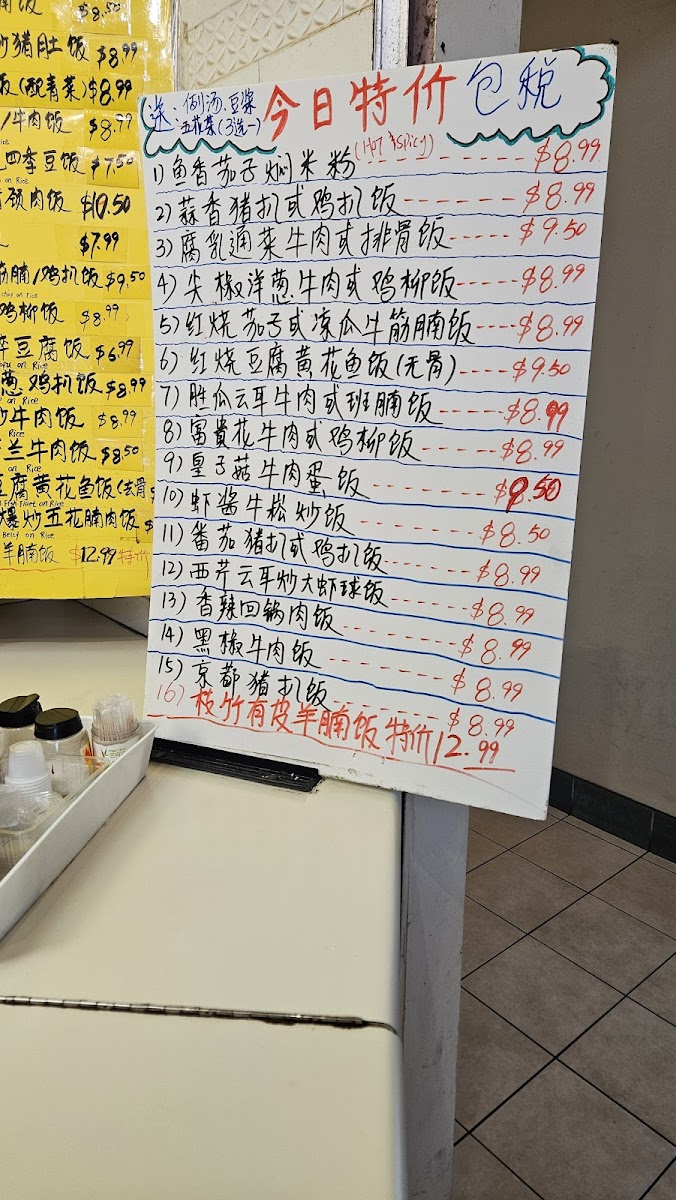 饭 $8.50
炒猪肚饭 $8.99
饭(配青菜) $8.99
/牛肉饭 $8.99
四季豆饭 $7.50
on Rice
颈肉饭 $10.50
$7.99
筋腩/鸡扒饭 $9.50
on Rice
鸡柳饭 $8.99
碎豆腐饭 $6.99
on Rice
葱鸡扒饭 $8.99
on Rice
炒牛肉饭 $8.99
Rice
芥兰牛肉饭 $8.50
on Rice
豆腐黄花鱼饭(去骨 $
Fish Fillet on Rice
爆炒五花腩肉饭 $
Belly on Rice
羊腩饭 $12.99 特价
送:例汤.豆浆
(3选一)
今日特价 包税
1) 鱼香茄子焖米粉 (Hot & Spicy) $8.99
2) 蒜香猪扒或鸡扒饭 $8.99
3) 腐乳通菜牛肉或排骨饭 $9.50
4) 尖椒洋葱牛肉或鸡柳饭 $8.99
5) 红烧茄子或凉瓜牛筋腩饭 $8.99
6) 红烧豆腐黄花鱼饭(无骨) $9.50
7) 胜瓜云耳牛肉或班腩饭 $8.99
8) 富貴花牛肉或鸡柳饭 $8.99
9) 皇子菇牛肉蛋饭 $8.50
10) 虾酱牛崧炒饭 $8.50
11) 番茄猪扒或鸡扒饭 $8.99
12) 西芹云耳炒大虾球饭 $8.99
13) 香辣回锅肉饭 $8.99
14) 黑椒牛肉饭 $8.99
15) 京都猪扒饭 $8.99
16) 枝竹有皮羊腩饭特价12.99